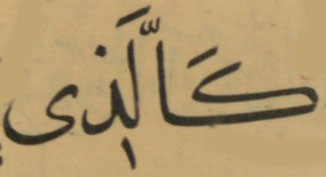 كَالَّذى